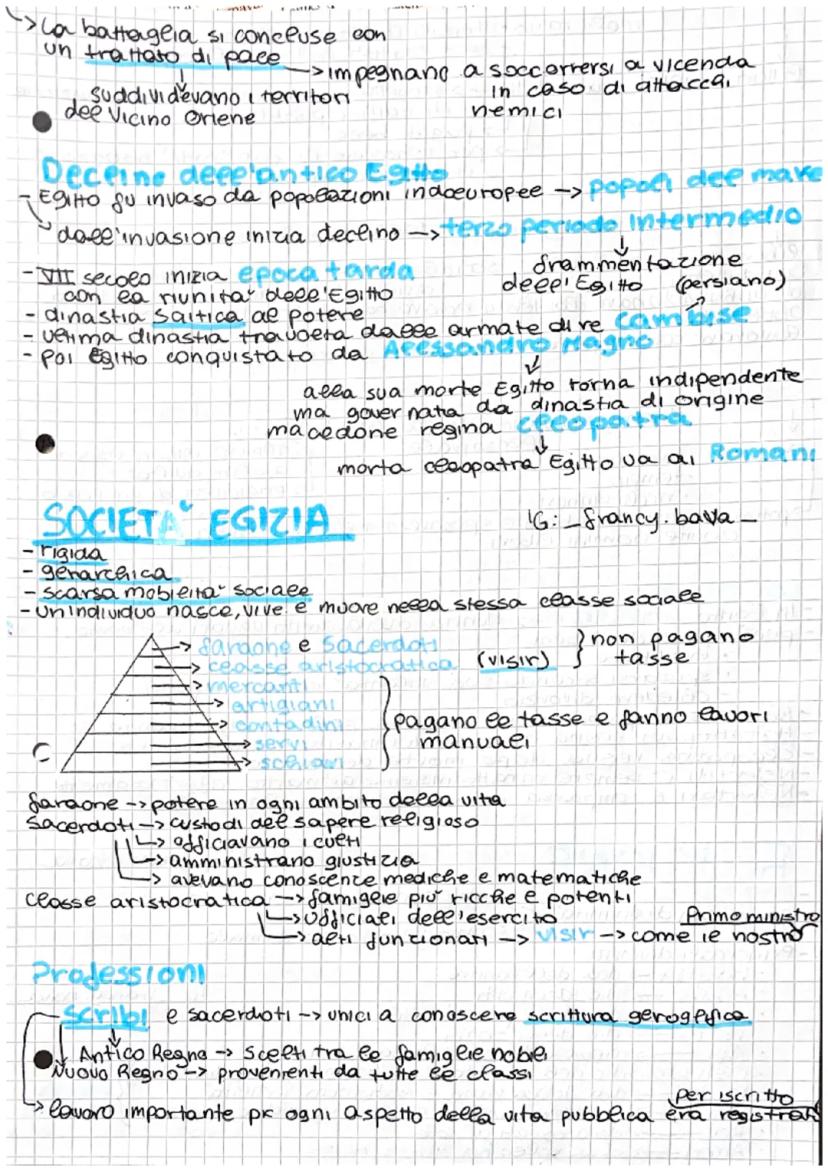 La battaglia si concluse con
un trattato di pace
→ impegnano a soccorrersi a vicenda
in caso di attacchi
nemici
suddividevano i territori
del Vicino Oriene
Declino dell'antico Egitto
- Egitto fu invaso da popolazioni indoeuropee → popoli del mare
dall'invasione inizia declino → terzo periodo intermedio
frammentazione
dell'Egitto
- VII secolo inizia epoca tarda
con la riunità dell'Egitto
(persiano)
- dinastia saitica al potere
- ultima dinastia travolta dalle armate di re Cambise
- poi Egitto conquistato da Alessandro Magno
alla sua morte Egitto torna indipendente
ma governata da dinastia di origine
macedone regina Cleopatra
morta cleopatra Egitto va ai Romani
SOCIETA' EGIZIA
IG: _francy.bava_
- rigida
- gerarchica
- scarsa mobilità sociale
- un individuo nasce, vive e muore nella stessa classe sociale
→ faraone e sacerdoti
→ classe aristocratica (visir)
} non pagano
tasse
→ mercanti
→ artigiani
→ contadini
→ servi
→ schiavi
} pagano le tasse e fanno lavori
manuali
faraone → potere in ogni ambito della vita
Sacerdoti → custodi del sapere religioso
→ officiavano i culti
→ amministrano giustizia
→ avevano conoscenze mediche e matematiche
classe aristocratica → famiglie più ricche e potenti
→ ufficiali dell'esercito
→ alti funzionari → visir → come il nostro Primo ministro
Professioni
Scribi e sacerdoti → unici a conoscere scrittura geroglifica
Antico Regno → scelti tra le famiglie nobili
Nuovo Regno → provenienti da tutte le classi
→ lavoro importante pk ogni aspetto della vita pubblica era registrato
per iscritto